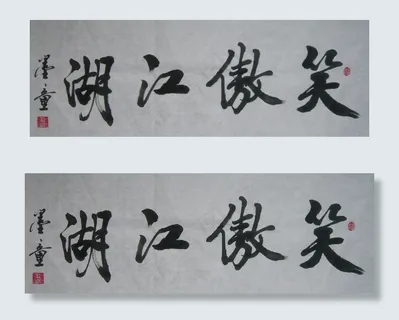 笑傲江湖
墨童
笑傲江湖
墨童